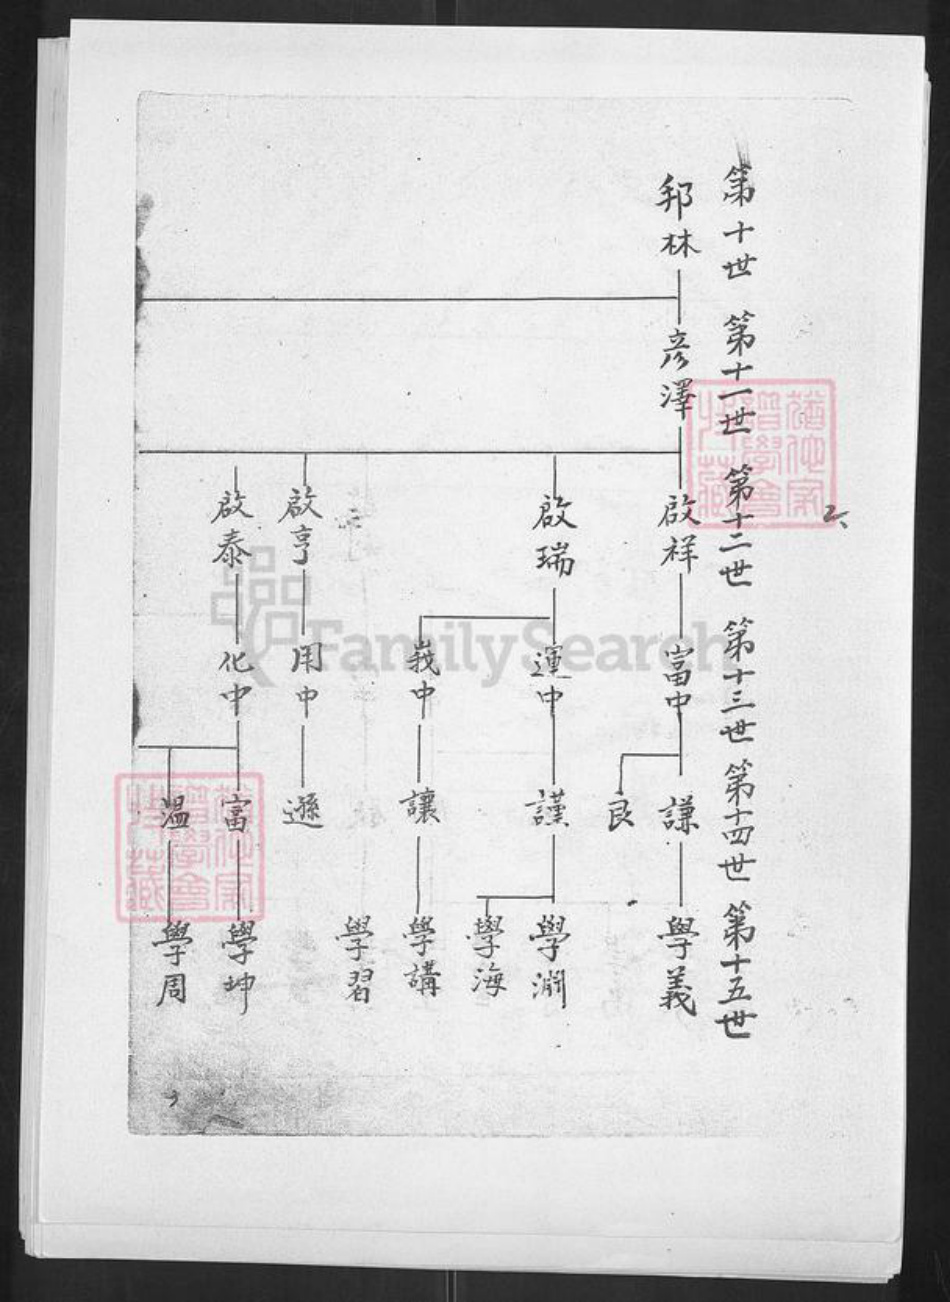 六
第十世 第十一世 第十二世 第十三世 第十四世 第十五世
邦林 彦澤 啟祥 富中 謙 學義
良
啟瑞 運中 謹 學淵
學海
峩中 讓 學講
學習
啟亨 用中 遜
啟泰 化中 富 學坤
溫 學周
FamilySearch